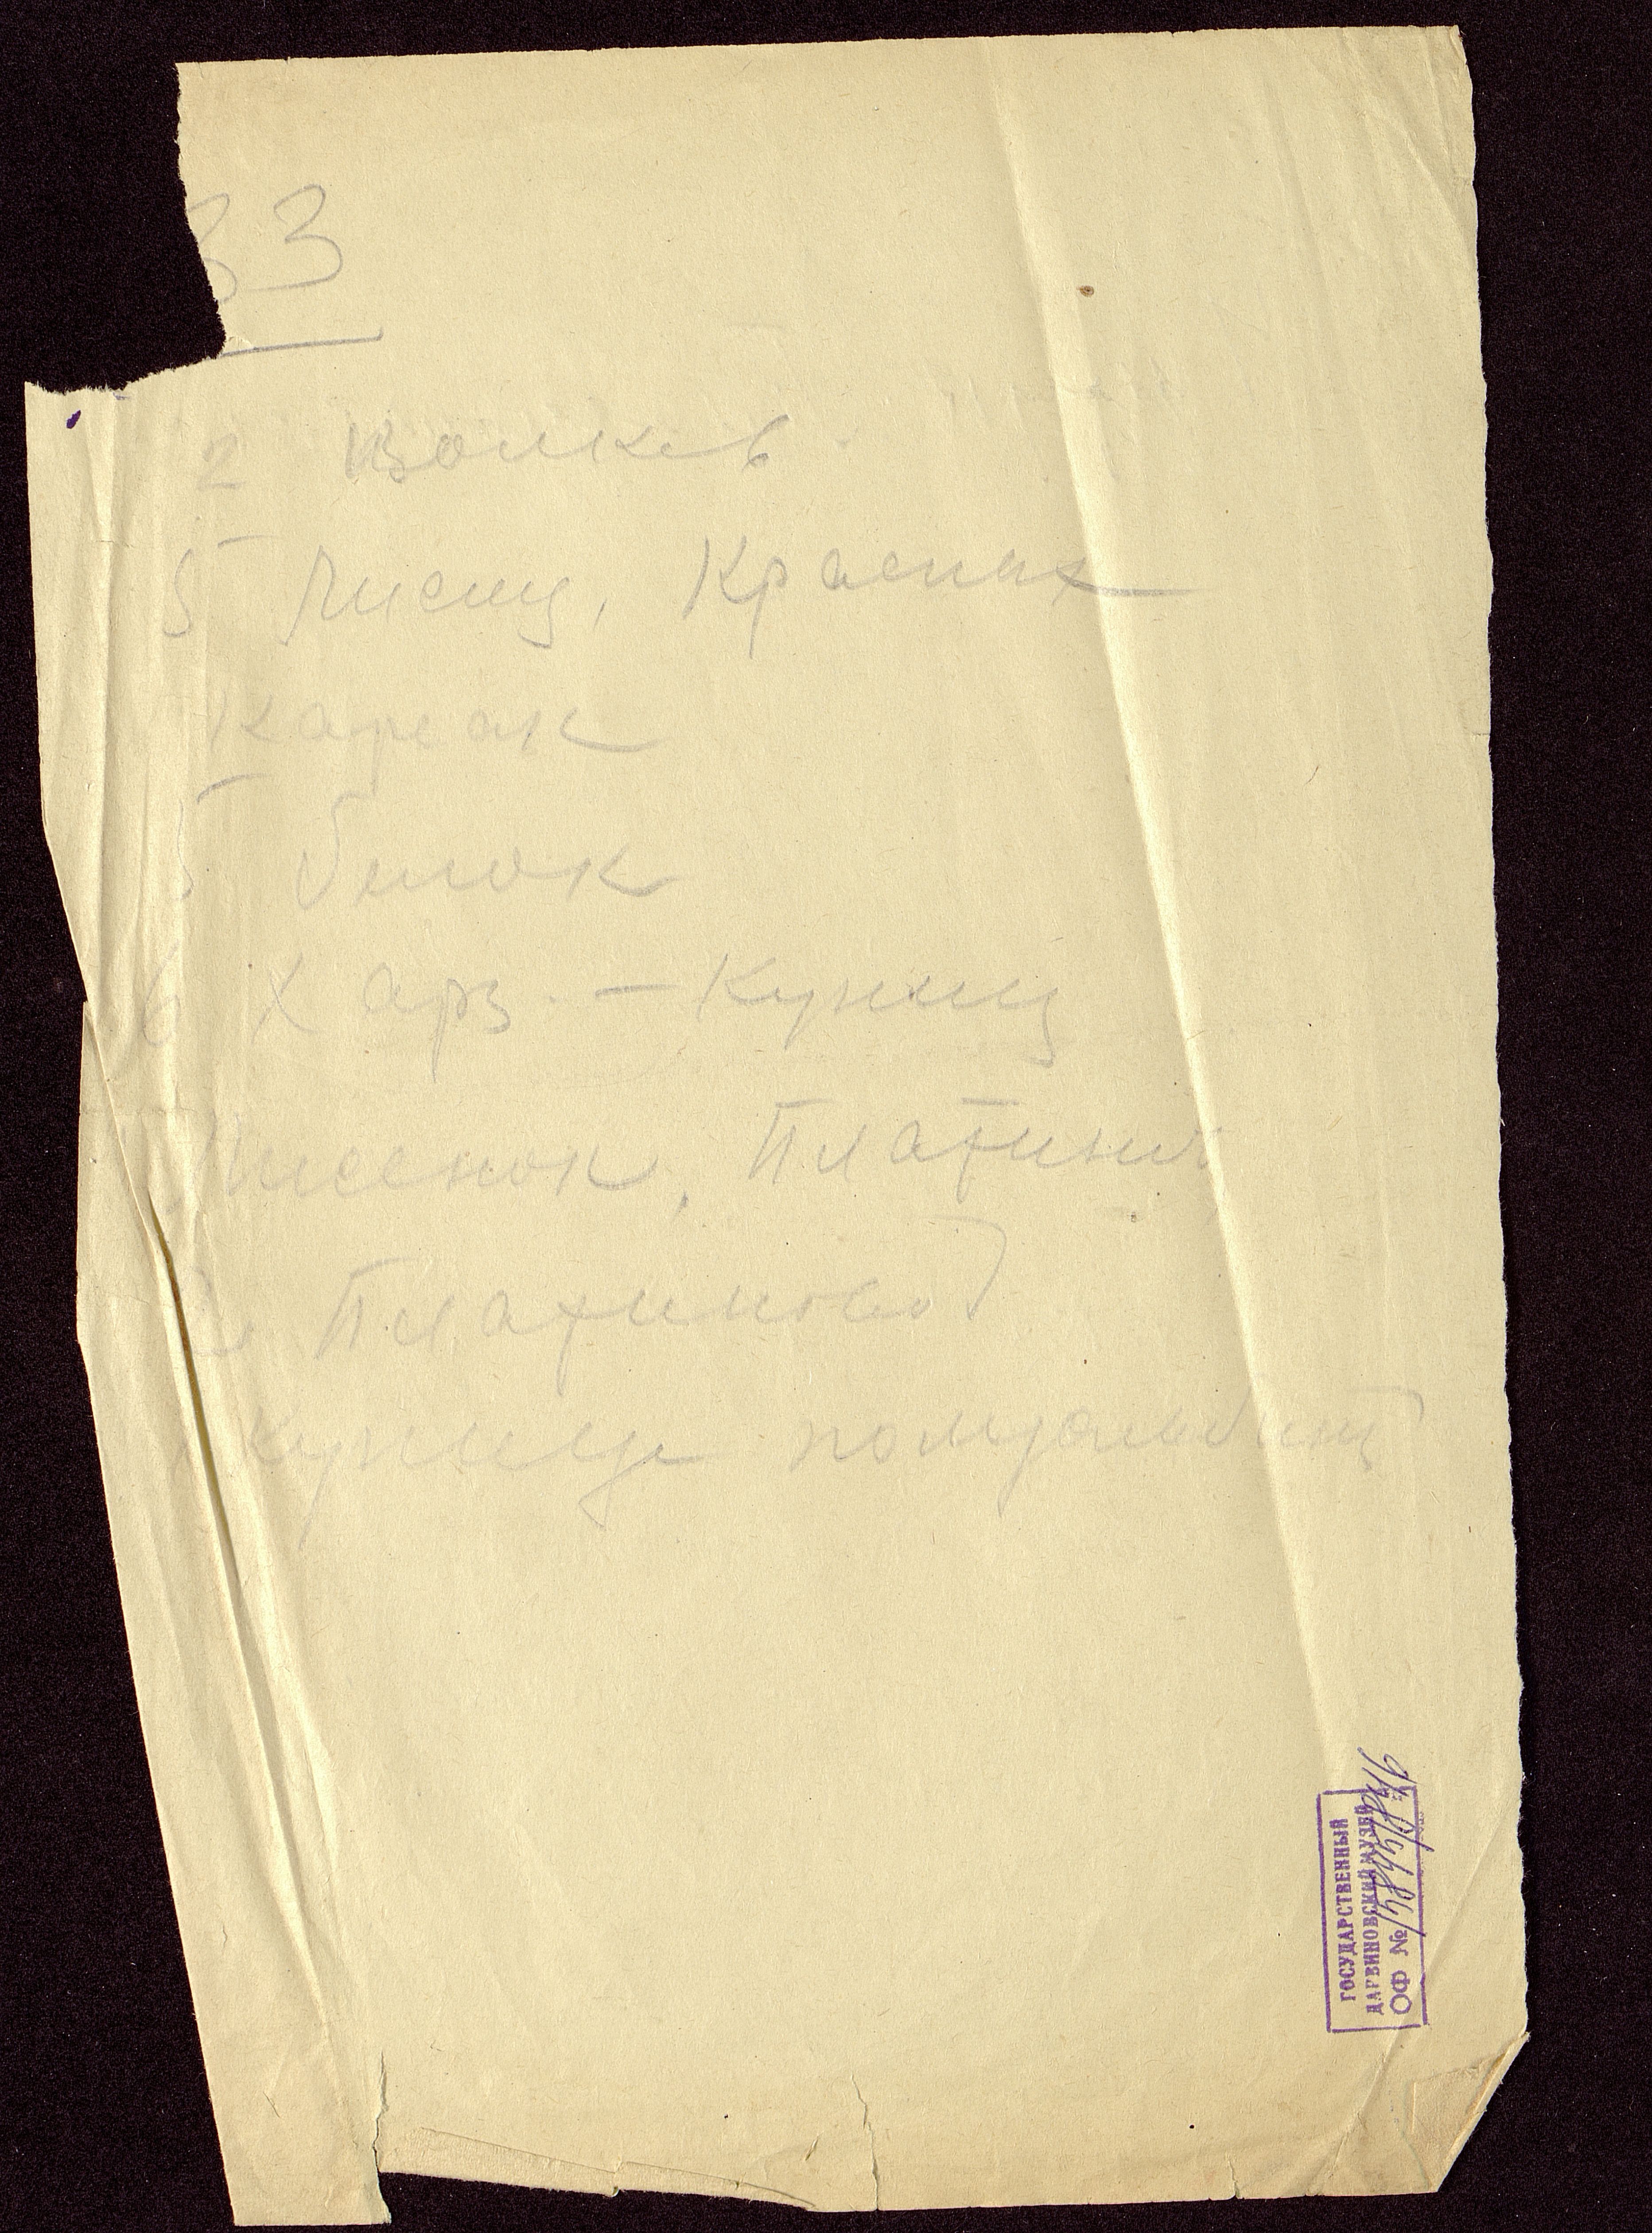 33
2 Волков
5 Лисиц, Красных
Карсак
5 белок
6 Харз. — Куниц
Лисенок, Платин.
Платиновой
Куница полуальбин
ГОСУДАРСТВЕННЫЙ
ДАРВИНОВСКИЙ МУЗЕЙ
ОФ №